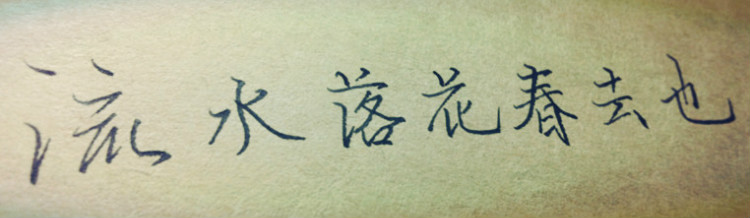 流水落花春去也